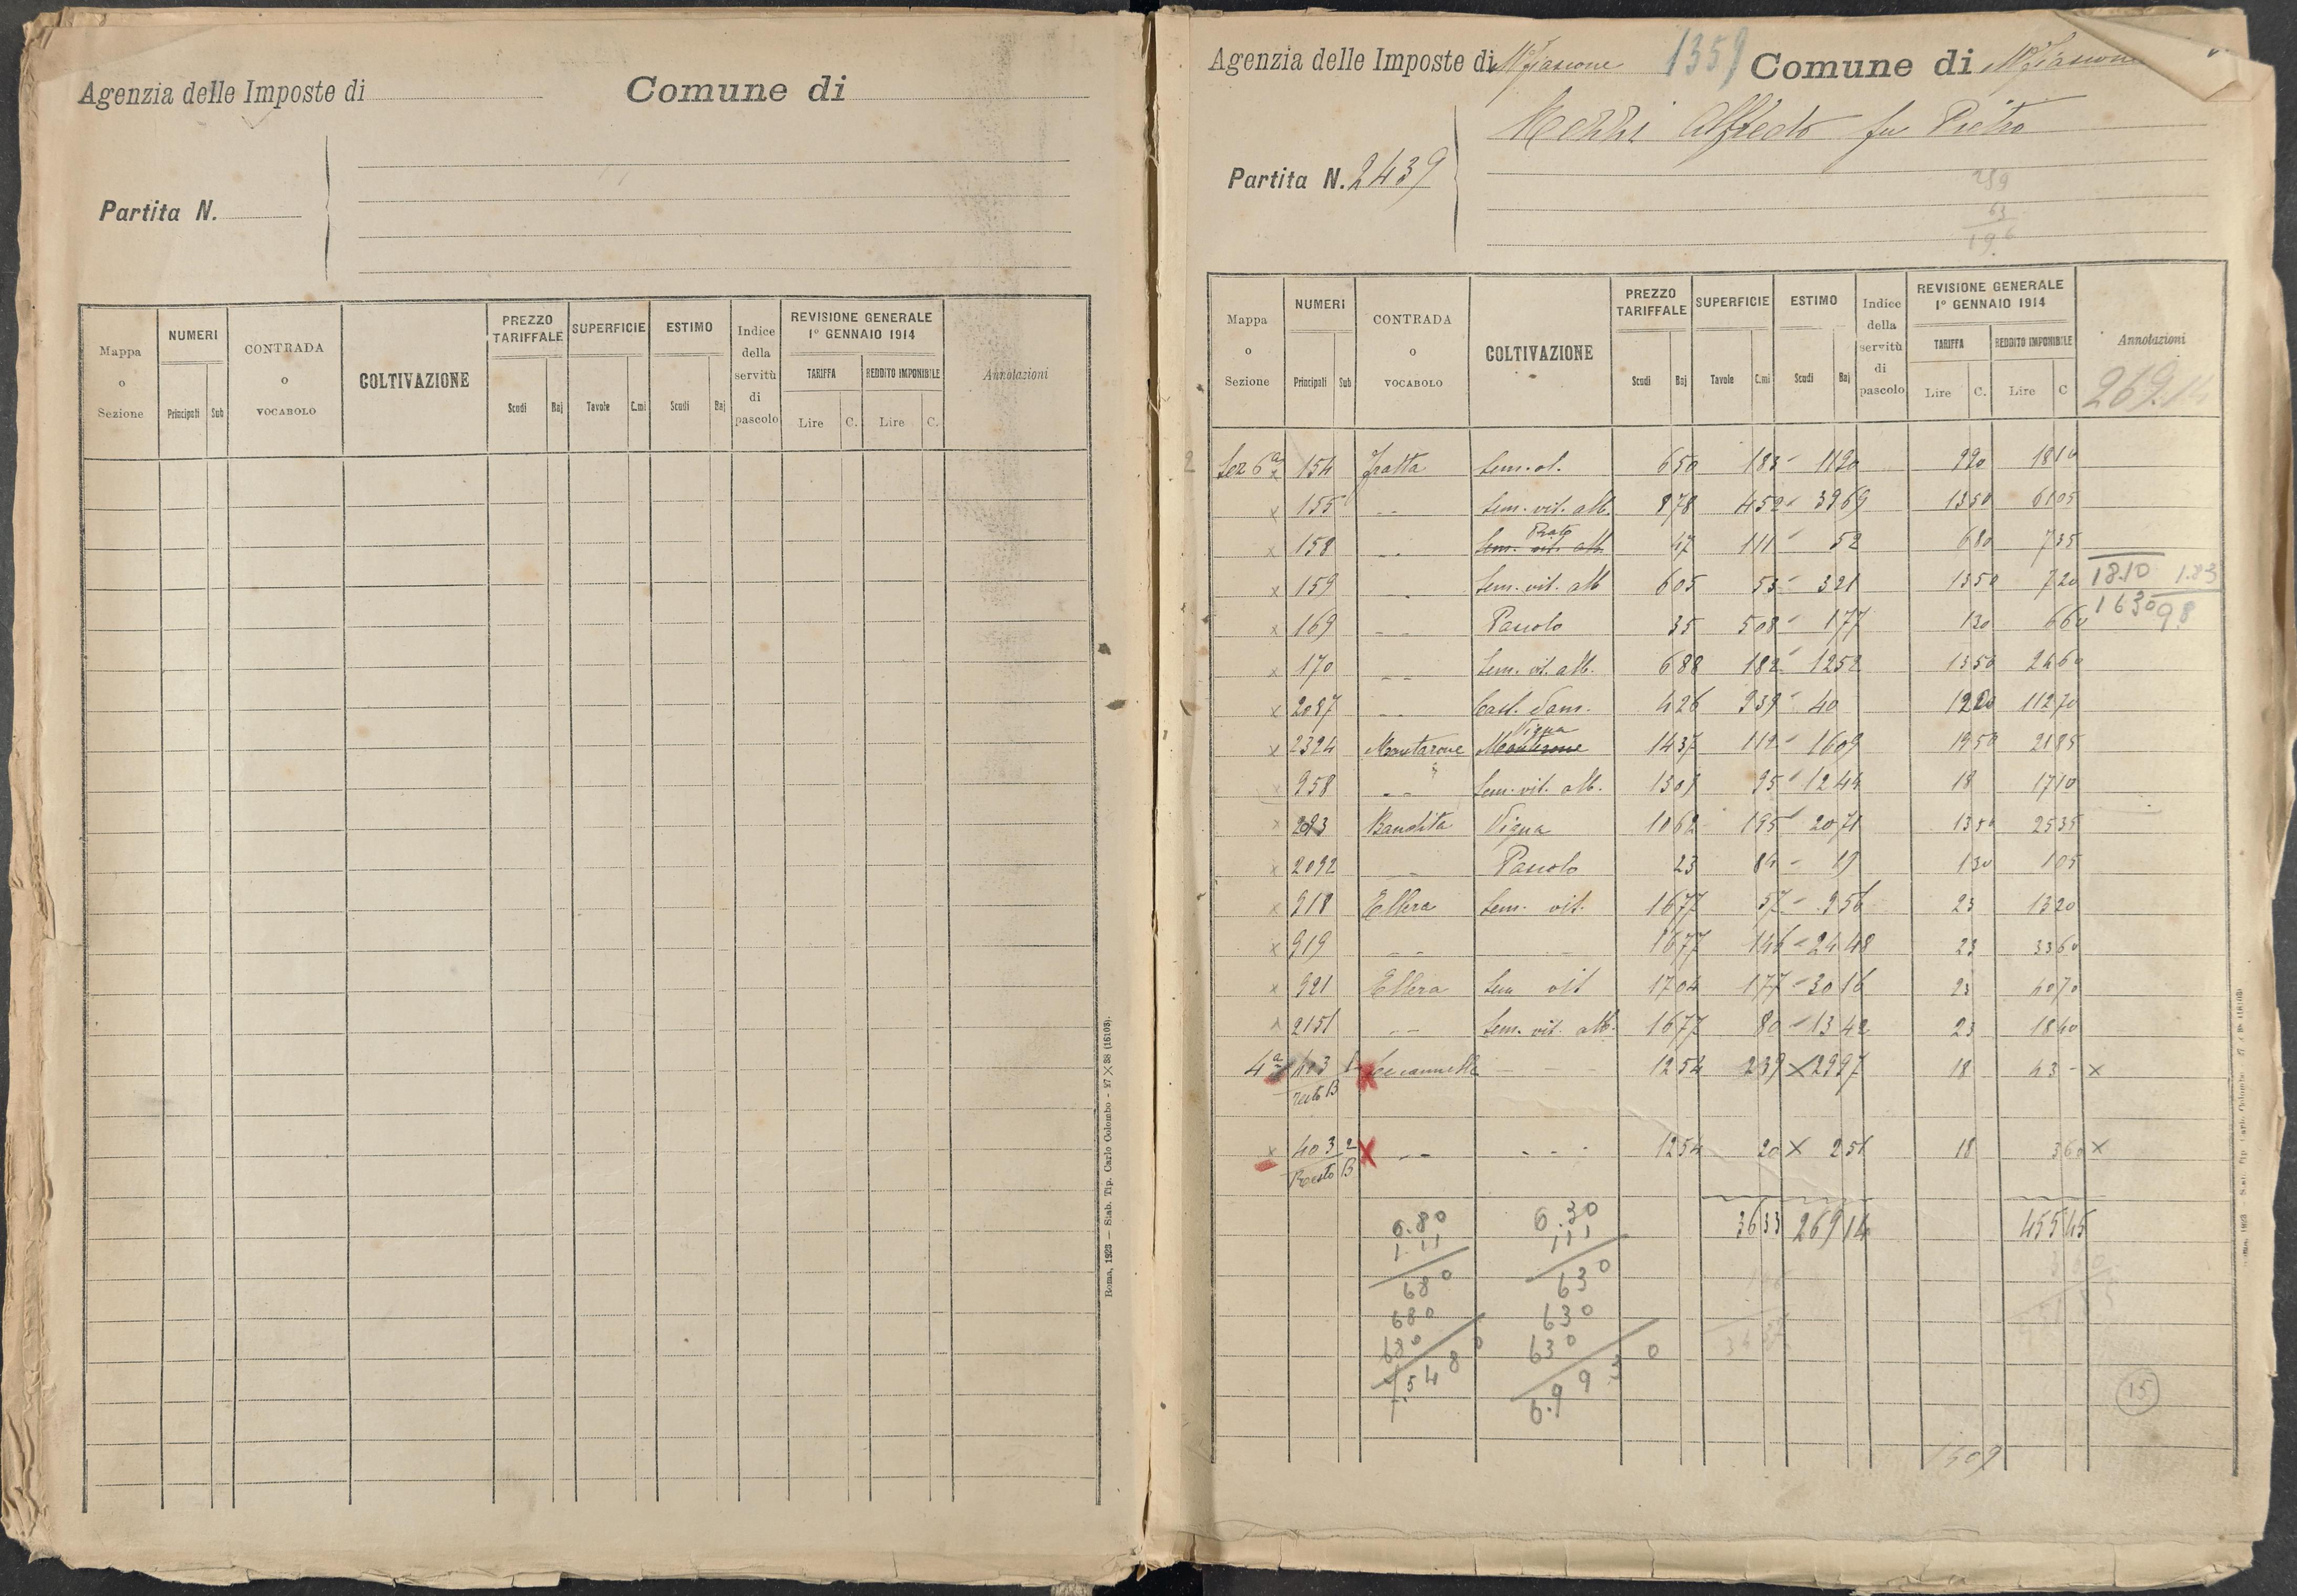 Agenzia delle Imposte di
Comune di
Partita N.
Mappa o Sezione
NUMERI
Principali Sub
CONTRADA O VOCABOLO
COLTIVAZIONE
PREZZO TARIFFALE
Scudi Baj
SUPERFICIE
Tavole C.mi
ESTIMO
Scudi Baj
Indice della servitù di pascolo
REVISIONE GENERALE
1° GENNAIO 1914
TARIFFA REDDITO IMPONIBILE
Lire C. Lire C.
Annotazioni
Roma, 1923 — Stab. Tip. Carlo Colombo - 27 × 38 (16103).
Agenzia delle Imposte di
1359
Comune di
Alfredo fu Pietro
Partita N. 2439
63
196
Mappa o Sezione
NUMERI
Principali Sub
CONTRADA O VOCABOLO
COLTIVAZIONE
PREZZO TARIFFALE
Scudi Baj
SUPERFICIE
Tavole C.mi
ESTIMO
Scudi Baj
Indice della servitù di pascolo
REVISIONE GENERALE
1° GENNAIO 1914
TARIFFA REDDITO IMPONIBILE
Lire C. Lire C
Annotazioni
269.14
Sez 6a x 154 Fratta Sem. ol. 6 50 1 83 - 11 90 9 90 18 10
x 155 - - Sem. vit. alb. 8 78 4 52 - 39 69 13 50 61 05
Prato
x 158 - - Sem. vit. alb. 47 1 11 - 52 6 80 7 35
x 159 - Sem. vit. alb 6 05 53 - 3 21 13 50 7 20 18.10 1.83
x 169 - - Pascolo 35 5 08 - 1 77 1 30 6 60 1630 98
x 170 - - Sem. vit. alb. 6 88 1 82 - 12 52 13 50 24 60
x 2087 - - Cast. dom. 4 26 9 39 - 40 12 20 112 70
Vigna
x 2324 Montarone 14 37 1 12 - 16 09 19 50 21 85
x 958 - - Sem. vit. alb. 13 09 95 - 12 44 18 17 10
x 2093 Bandita Vigna 10 62 1 95 - 20 71 13 50 25 35
x 2092 - Pascolo 23 84 - 19 1 30 1 05
x 918 Ellera Sem. vit. 16 77 57 - 9 56 23 13 20
x 919 - - 16 77 1 46 - 24 48 23 33 60
x 921 Ellera Sem vit 17 04 1 77 - 30 16 23 40 70
x 2151 - - Sem. vit. alb. 16 77 80 - 13 42 23 18 40
4a 403 12 54 2 39 x 29 97 18 43 - x
resto B
x 403 2 x - - - - - 12 54 20 x 2 51 18 3 60 x
Resto B
36 33 269 14 455 45
6.80 6.30
1.11 111
680 630
680 630
680 630
7.5480 6.9930
15
1609